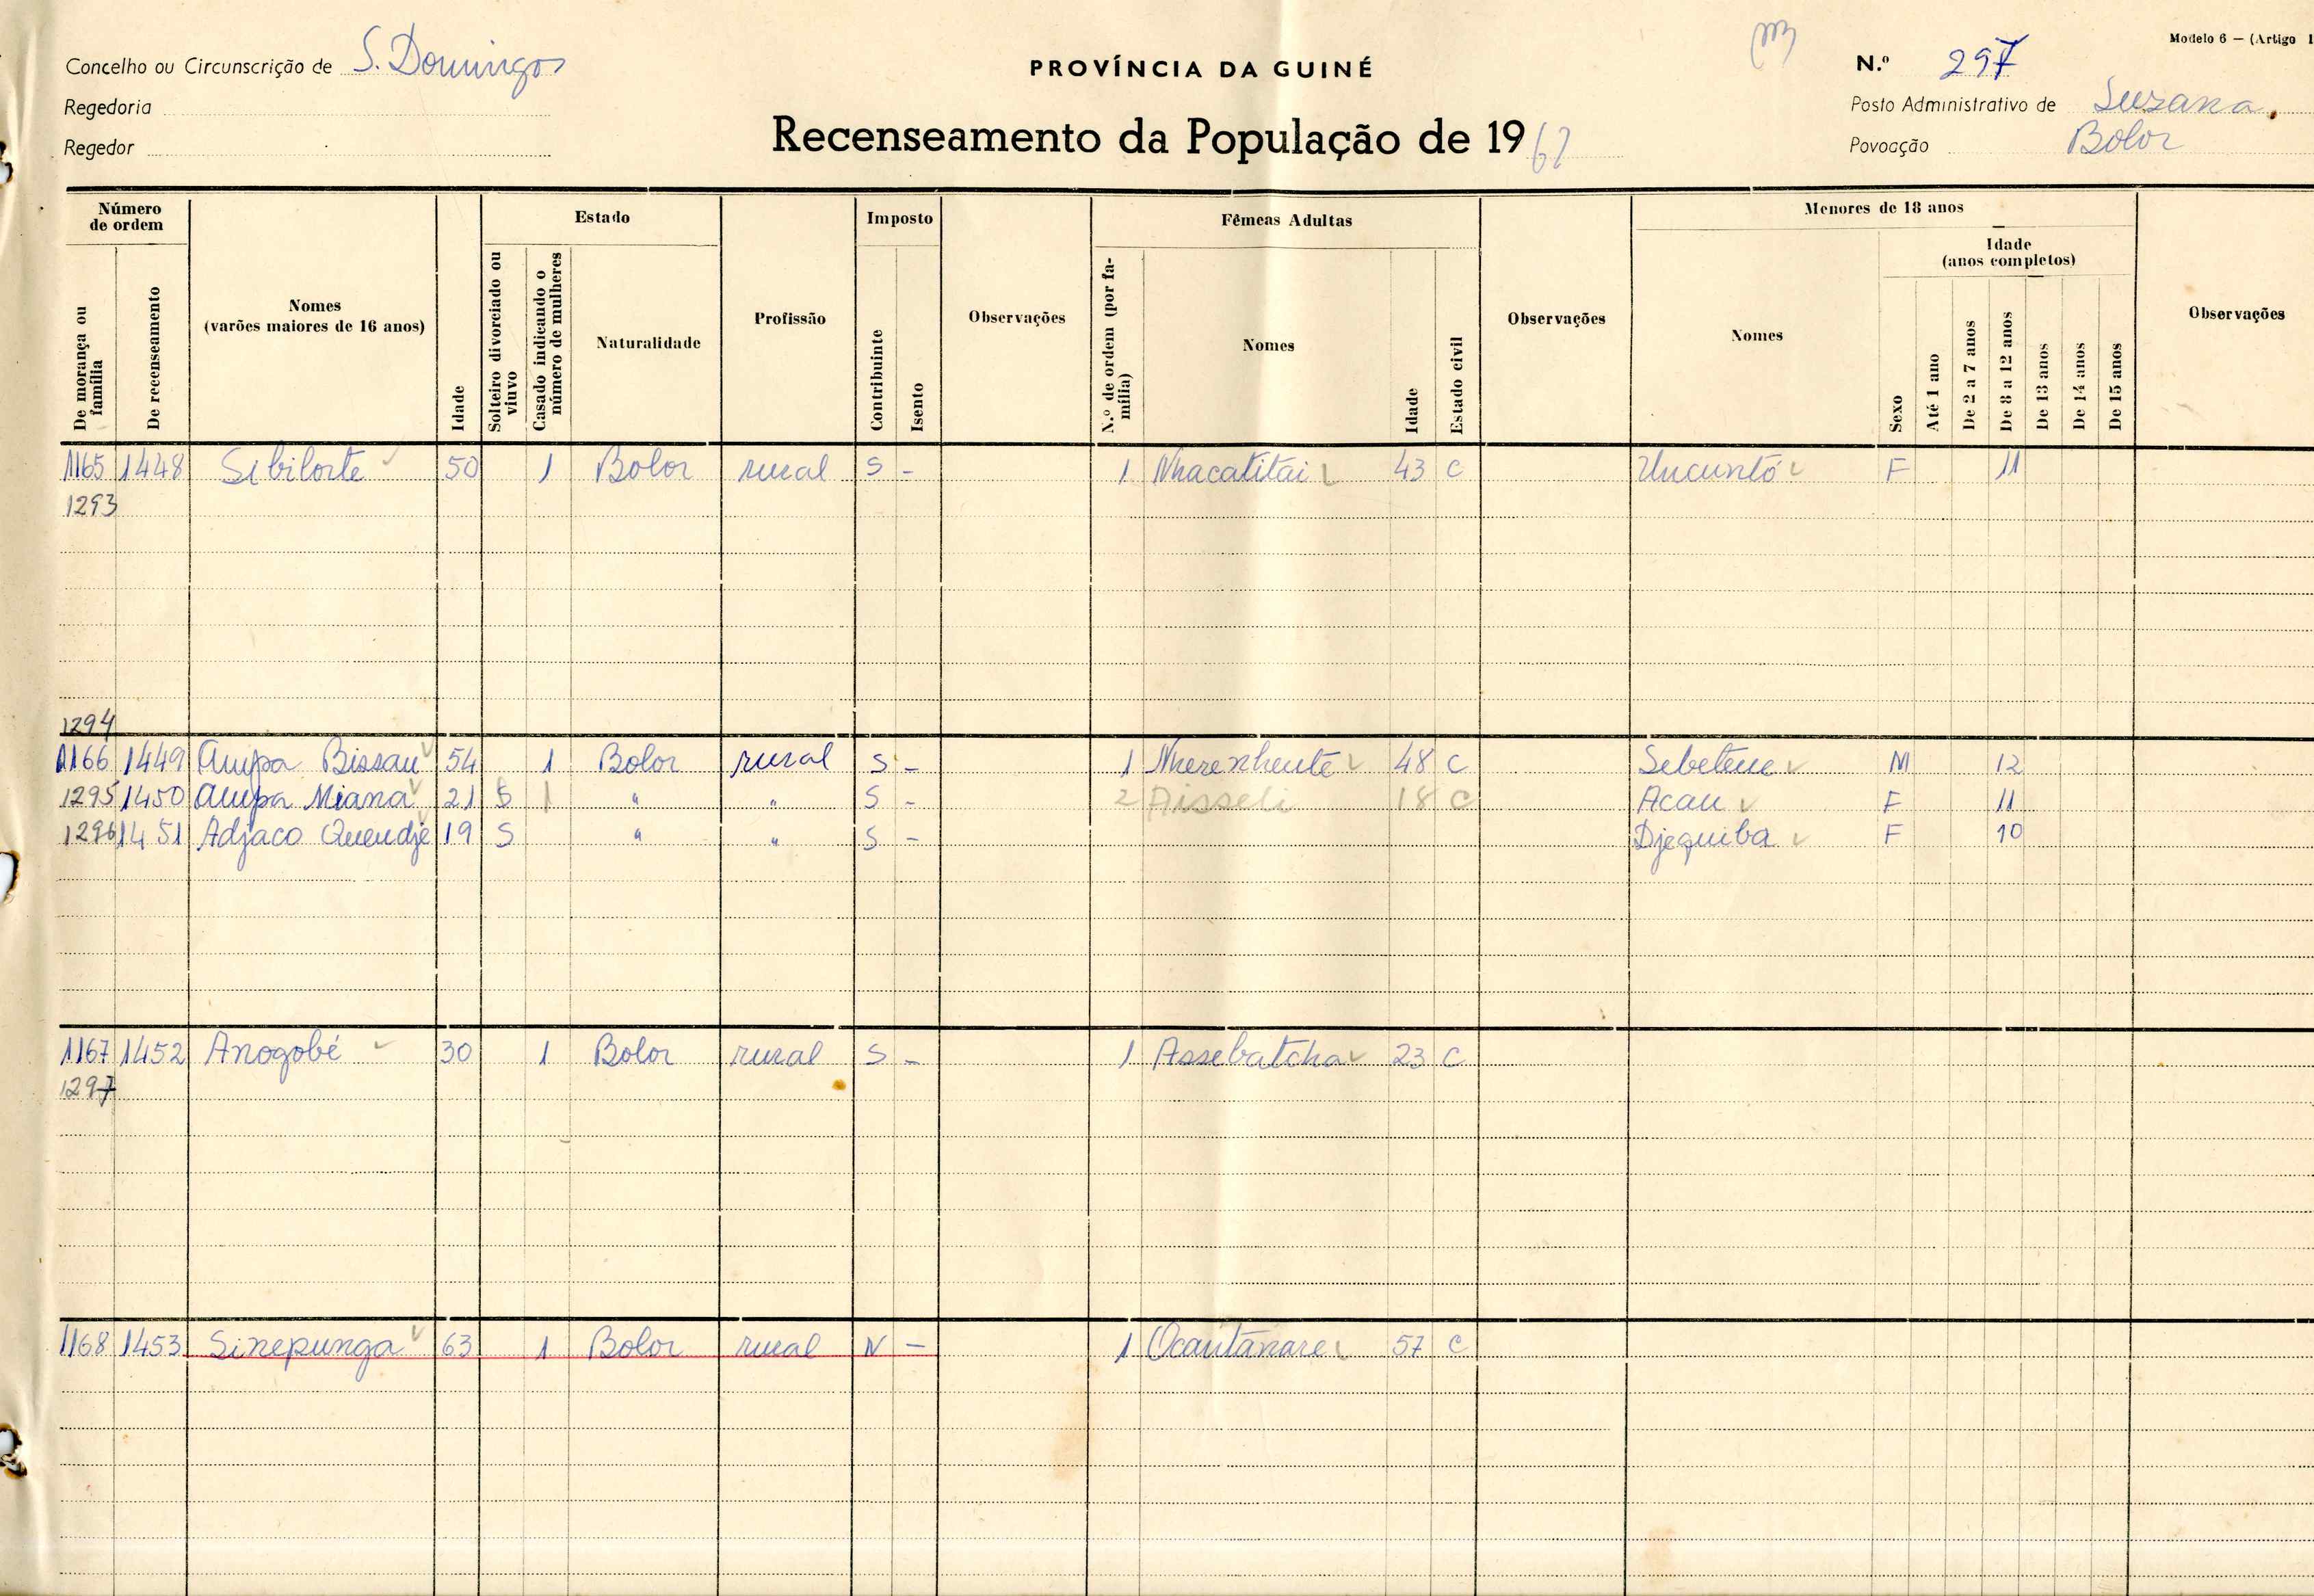 Modelo 6 — (Artigo 1
Concelho ou Circunscrição de S. Domingos
PROVÍNCIA DA GUINÉ
N.º 297
Regedoria
Posto Administrativo de Suzana
Regedor
Recenseamento da População de 196
Povoação Bolor
Número de ordem
De morança ou família
De recenseamento
Nomes
(varões maiores de 16 anos)
Idade
Estado
Solteiro divorciado ou viuvo
Casado indicando o número de mulheres
Naturalidade
Profissão
Imposto
Contribuinte
Isento
Observações
Fêmeas Adultas
N.º de ordem (por família)
Nomes
Idade
Estado civil
Observações
Menores de 18 anos
Nomes
Sexo
Idade
(anos completos)
Até 1 ano
De 2 a 7 anos
De 8 a 12 anos
De 13 anos
De 14 anos
De 15 anos
Observações
1165 1448 Sibilorte 50 1 Bolor rural S - 1 Nhacatitai 43 C Uncuntó F 11
1293
1294
1166 1449 Ampa Bissau 54 1 Bolor rural S - 1 Nherenhente 48 C Sebetene M 12
1295 1450 Ampa Miana 21 S 1 " " S - 2 Aisseli 18 C Acau F 11
1296 1451 Adjaco Quendje 19 S " " S - Djequiba F 10
1167 1452 Anogobé 30 1 Bolor rural S - 1 Assebatcha 23 C
1297
1168 1453 Sinepunga 63 1 Bolor rural N - 1 Ocautanare 57 C